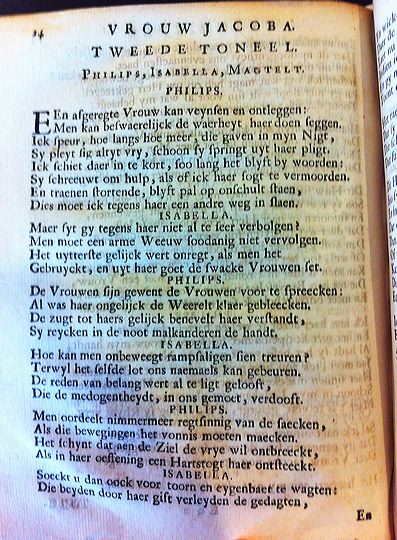 24
VROUW JACOBA.
TWEEDE TONEEL.
PHILIPS, ISABELLA, MAGTELT.
PHILIPS.
EEn afgeregte Vrouw kan veynsen en ontleggen:
Men kan beswaerelijck de waerheyt haer doen seggen.
Ick speur, hoe langs hoe meer, die gaven in myn Nigt,
Sy pleyt sig altyt vry, schoon sy springt uyt haer pligt.
Ick schiet daer in te kort, soo lang het blyft by woorden:
Sy schreeuwt om hulp, als of ick haer sogt te vermoorden.
En traenen stortende, blyft pal op onschult staen,
Dies moet ick tegens haer een andre weg in slaen.
ISABELLA.
Maer syt gy tegens haer niet al te seer verbolgen?
Men moet een arme Weeuw soodanig niet vervolgen.
Het uytterste gelijck wert onregt, als men het
Gebruyckt, en uyt haer goet de swacke Vrouwen set.
PHILIPS.
De Vrouwen sijn gewent de Vrouwen voor te spreecken:
Al was haer ongelijck de Weerelt klaer gebleecken.
De zugt tot haers gelijck benevelt haer verstandt,
Sy reycken in de noot malkanderen de handt.
ISABELLA.
Hoe kan men onbeweegt rampsaligen sien treuren?
Terwyl het selfde lot ons naemaels kan gebeuren.
De reden van belang wert al te ligt gelooft,
Die de medogentheydt, in ons gemoet, verdooft.
PHILIPS.
Men oordeelt nimmermeer regtsinnig van de saecken,
Als die bewegingen het vonnis moeten maecken.
Het schynt dat aen de Ziel de vrye wil ontbreeckt,
Als in haer oeffening een Hartstogt haer ontsteeckt.
ISABELLA.
Soeckt u dan oock voor toorn en eygenbaet te wagten:
Die beyden door haer gift verleyden de gedagten,
En